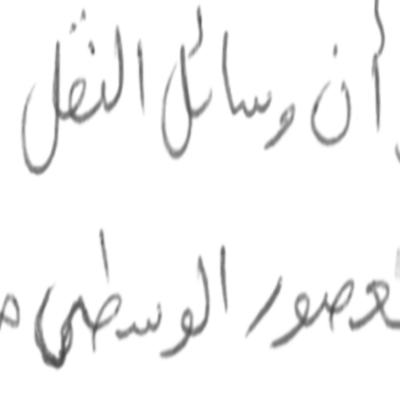 أن وسائل النقل
لعصور الوسطى